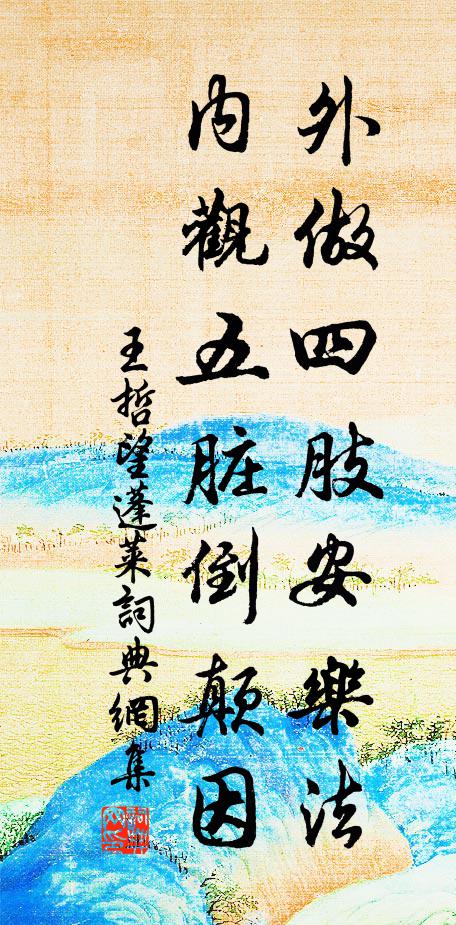 外做四肢安樂法
內觀五脏倒颠因
王哲望蓬莱詞典網集